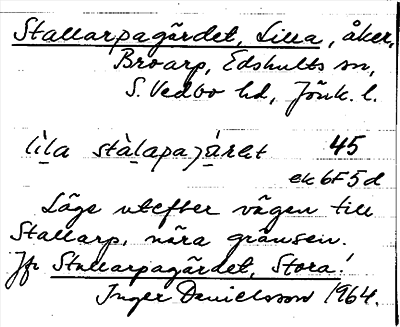 Stallarpagärdet, Lilla, åker,
Broarp, Edshults sn,
S. Vedbo hd, Jönk. l.
lìla stàlapajǻret 45
ek 6F5d
Läge utefter vägen till
Stallarp, nära gränsen.
Jfr Stallarpagärdet, Stora!
Inger Danielsson 1964.